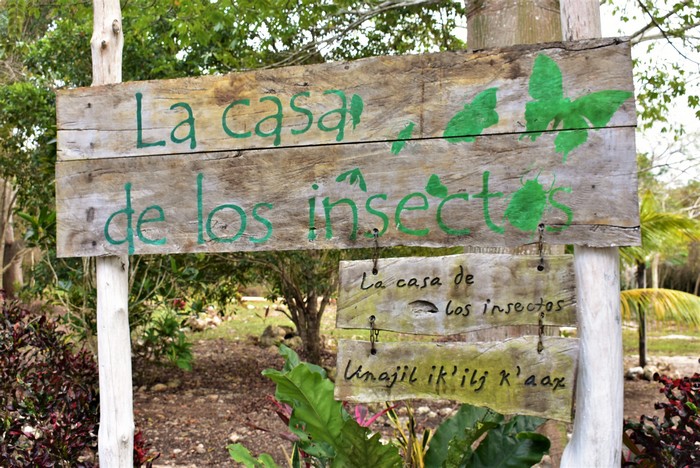 La casa
de los insectos
La casa de
los insectos
Unajil ik'ilj k'aax